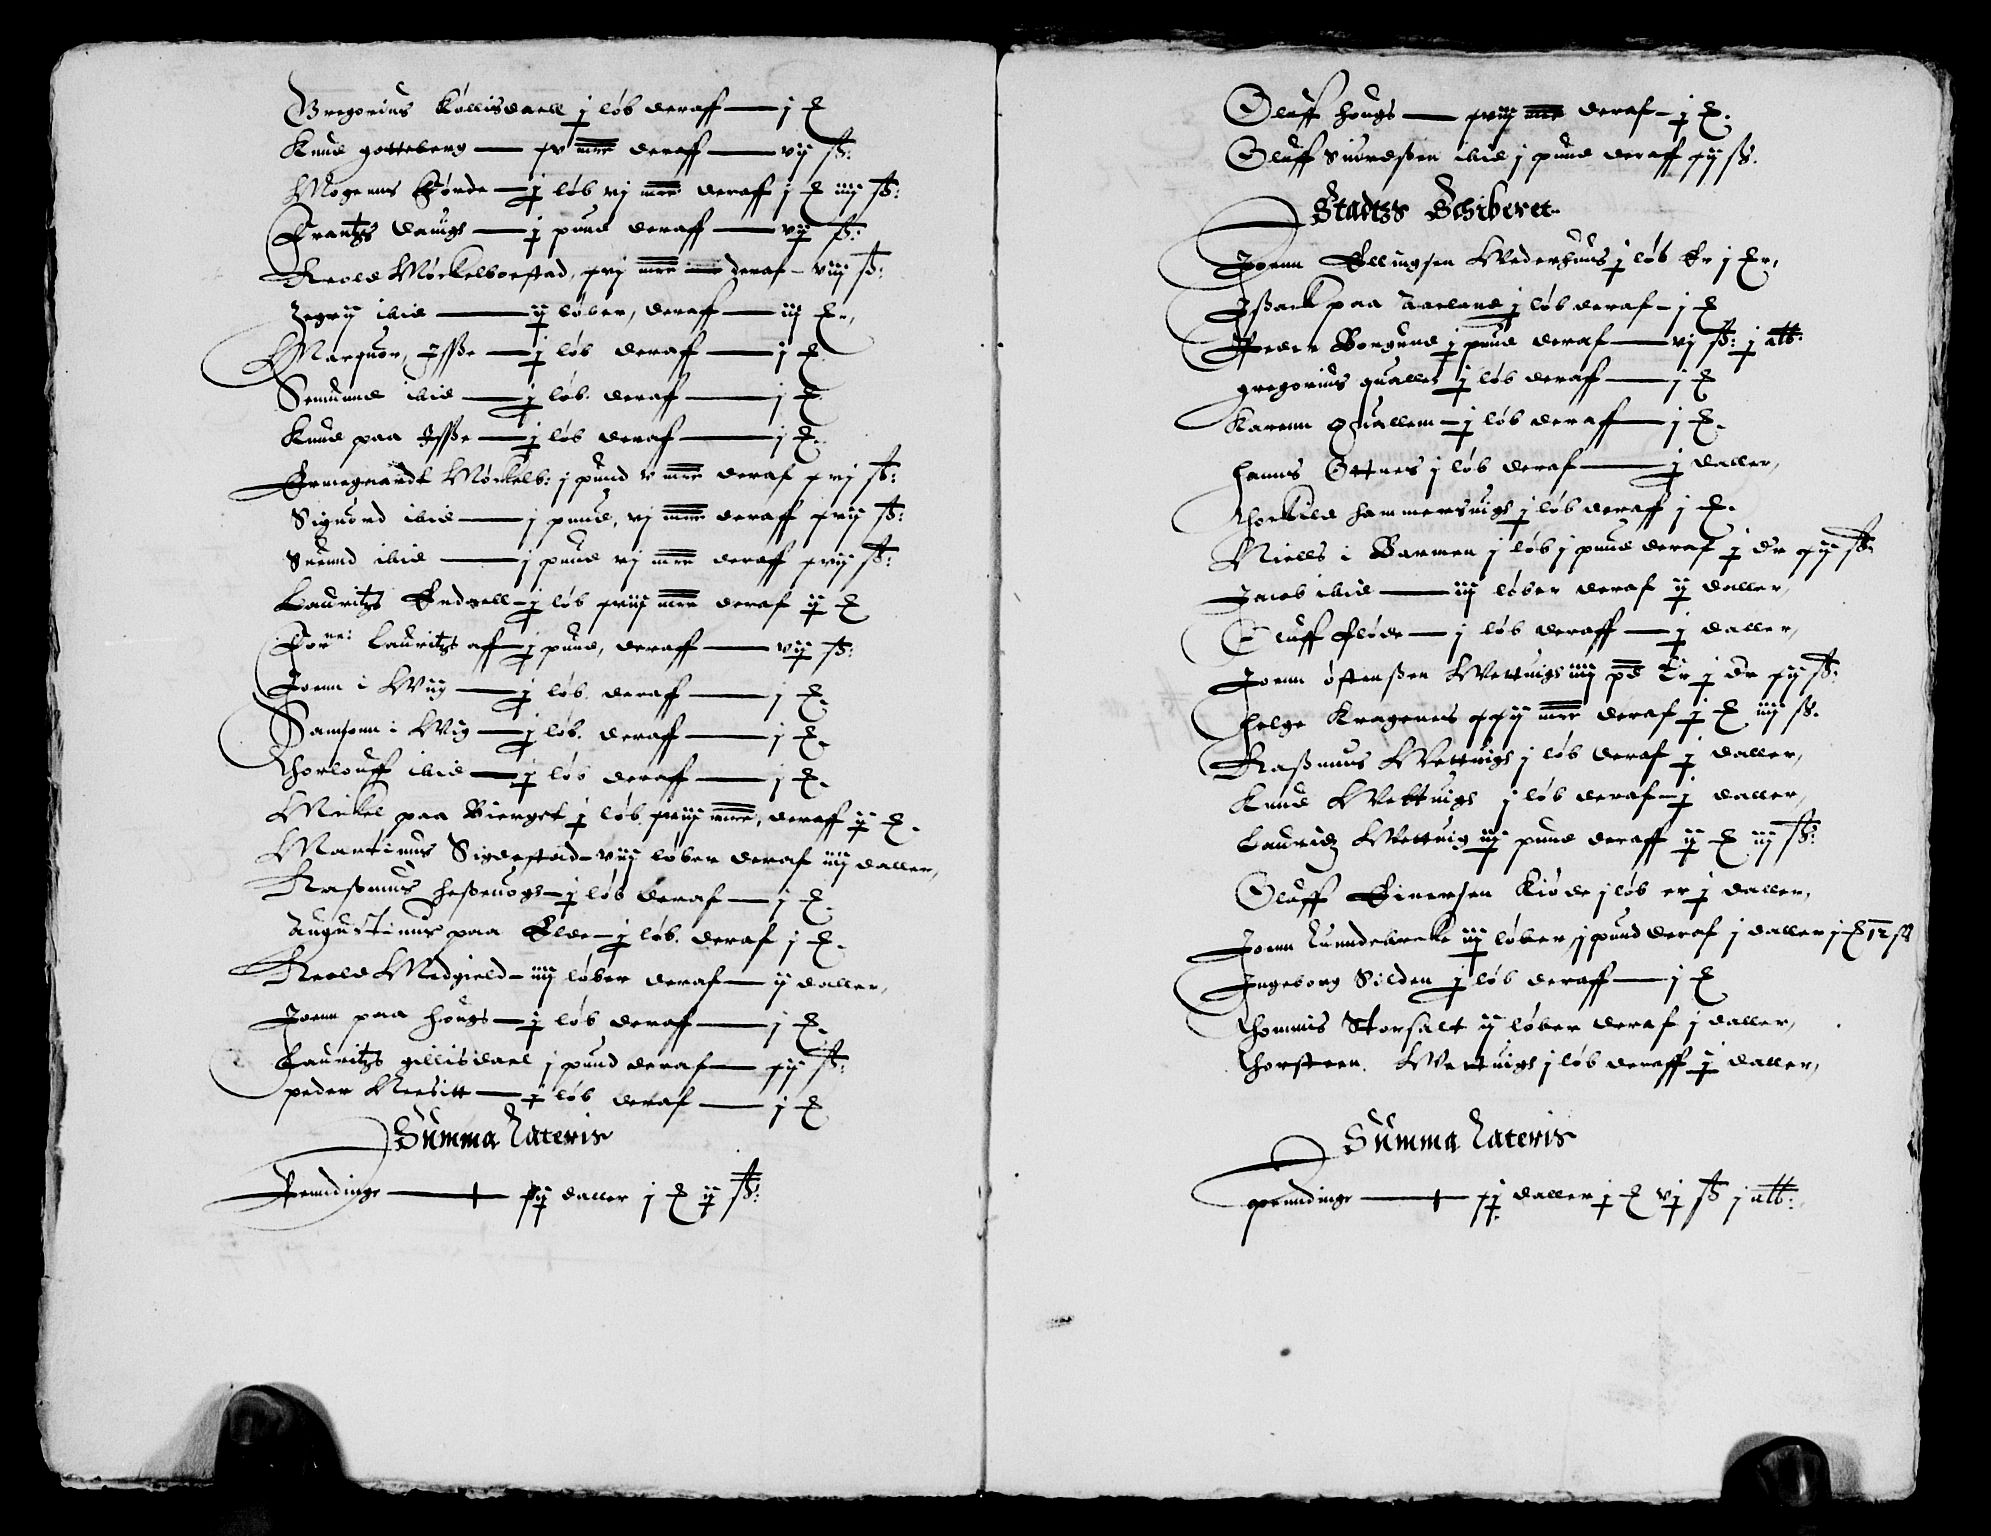 Gregorius Kollisdaell j løb deraff — j ℥
Knud gotteberg — xv mrc deraff — vij ß:
Mogenns Førde — j løb vj mrc deraff j ℥ iiij ß:
Frantzs dauigs — j pund deraff — vij ß:
Reold Møckelboestad, xvj mrc deraf — viij ß:
Jegrij ibid — ij løber, deraff — iij ℥,
Marquor, Isße — j løb deraff — j ℥
Semund ibid — j løb. deraf — j ℥
Knud paa Isße — j løb deraf — j ℥.
Ermegaardt Møckelb: j pund v mrc deraf xvj ß:
Siguord ibid — j pund, vj mrc deraff xvij ß:
Suend ibid — j pund vj mrc deraff xvij ß:
Lauritzs Endvell — j løb xviij mrc deraf ij ℥
Forne: Lauritzs aff — j pund, deraff — vij ß:
Joenn i Wiig — j løb. deraf — j ℥.
Samsonn i Wig — j løb. deraff — j ℥.
Thorlouff ibid — j løb deraff — j ℥.
Mickel paa Bierget j løb. xviij mrc, deraff ij ℥.
Martinus Sigdestad — viij løber deraf iiij daller,
Raßmus heßeuogs — j løb deraf — j ℥.
Augustinus paa Elde — j løb. deraf j ℥.
Reold Medgield — iiij løber deraf — ij daller,
Joenn paa hougs — j løb deraff — j ℥.
Lauritzs gillisdael j pund deraf — xij ß:
peder Neesitt — j løb deraf — j ℥
Summa Lateris
Penndinge — xij daller j ℥ ij ß:
Oluff hougs — xviij mrc deraf — j ℥.
Oluff Siurdßen ibid j pund deraff xij ß.
Stadtzs Schiberet
Joenn Ellingsen Wederhuus j løb Er j ℥r,
Ißack paa Aaeland j løb deraf — j ℥
Peder Borgund j pund deraf — vj ß: j alb:
gregorius qualles j løb deraf — j ℥
Karenn Quallem — j løb deraff — j ℥.
hanns Ottnes j løb deraf — j daller,
Thorkild hammersuigs j løb deraff j ℥.
Niells i Barmen j løb j pund deraf j dr xij ß:
Jacob ibid — iiij løber deraf ij daller,
Oluff Fløde — j løb deraff — j daller,
Joenn østenßen Wettuigs iiij pd Er j dr xij ß:
helge Kragenes xxij mrc deraf j ℥ iiij ß.
Raßmuus Wettuigs j løb deraf j daller,
Knud Wettuigs j løb deraf — j daller,
Lauridz Wettuig iiij pund deraff ij ℥ iij ß:
Oluff Einersen Kiøde j løb er j daller,
Joenn Lunndebrecke iij løber j pund deraf j daller j ℥ 12 ß
Ingeborg Silden j løb deraff — j ℥
Thommis Storsalt ij løber deraf j daller,
Thorsteen. Wettuigs j løb deraff j daller,
Summa Lateris
penndinge — xj daller j ℥ vj ß j alb: